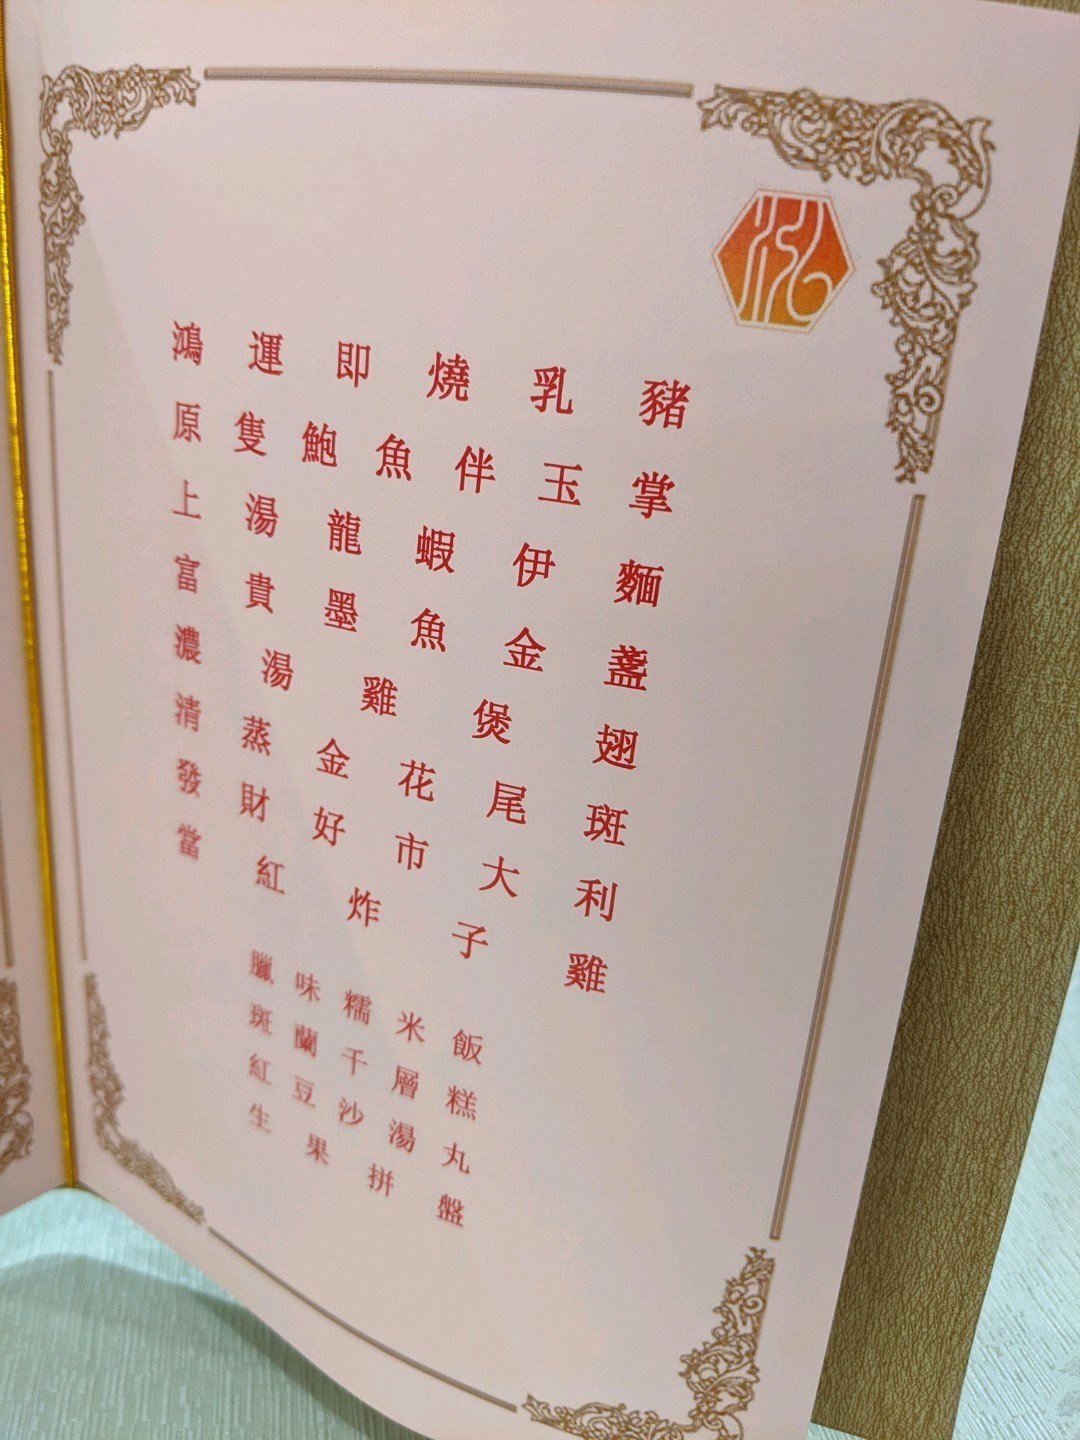 泓
鴻運即燒乳豬
原隻鮑魚伴玉掌
上湯龍蝦伊麵
富貴墨魚金盞
濃湯雞煲翅
清蒸金花尾斑
發財好市大利
當紅炸子雞
臘味糯米飯
斑蘭千層糕
紅豆沙湯丸
生果拼盤